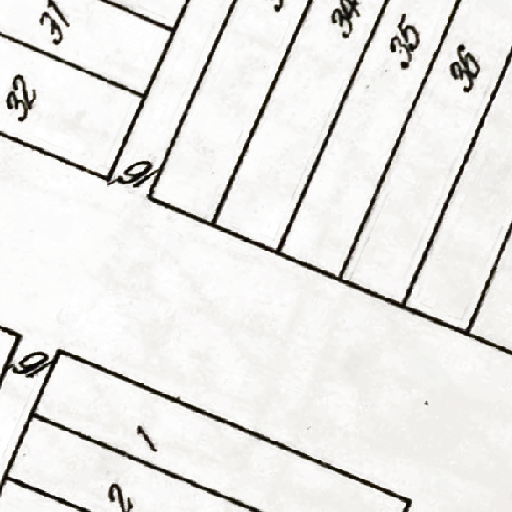 31
32
34
35
36
9
9
1
2